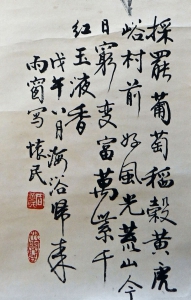 採罷葡萄稻穀黃虎
峪村前好風光荒山今
日窮變富萬業千
紅玉液香
戊午八月海浴歸來
雨窗寫懷民